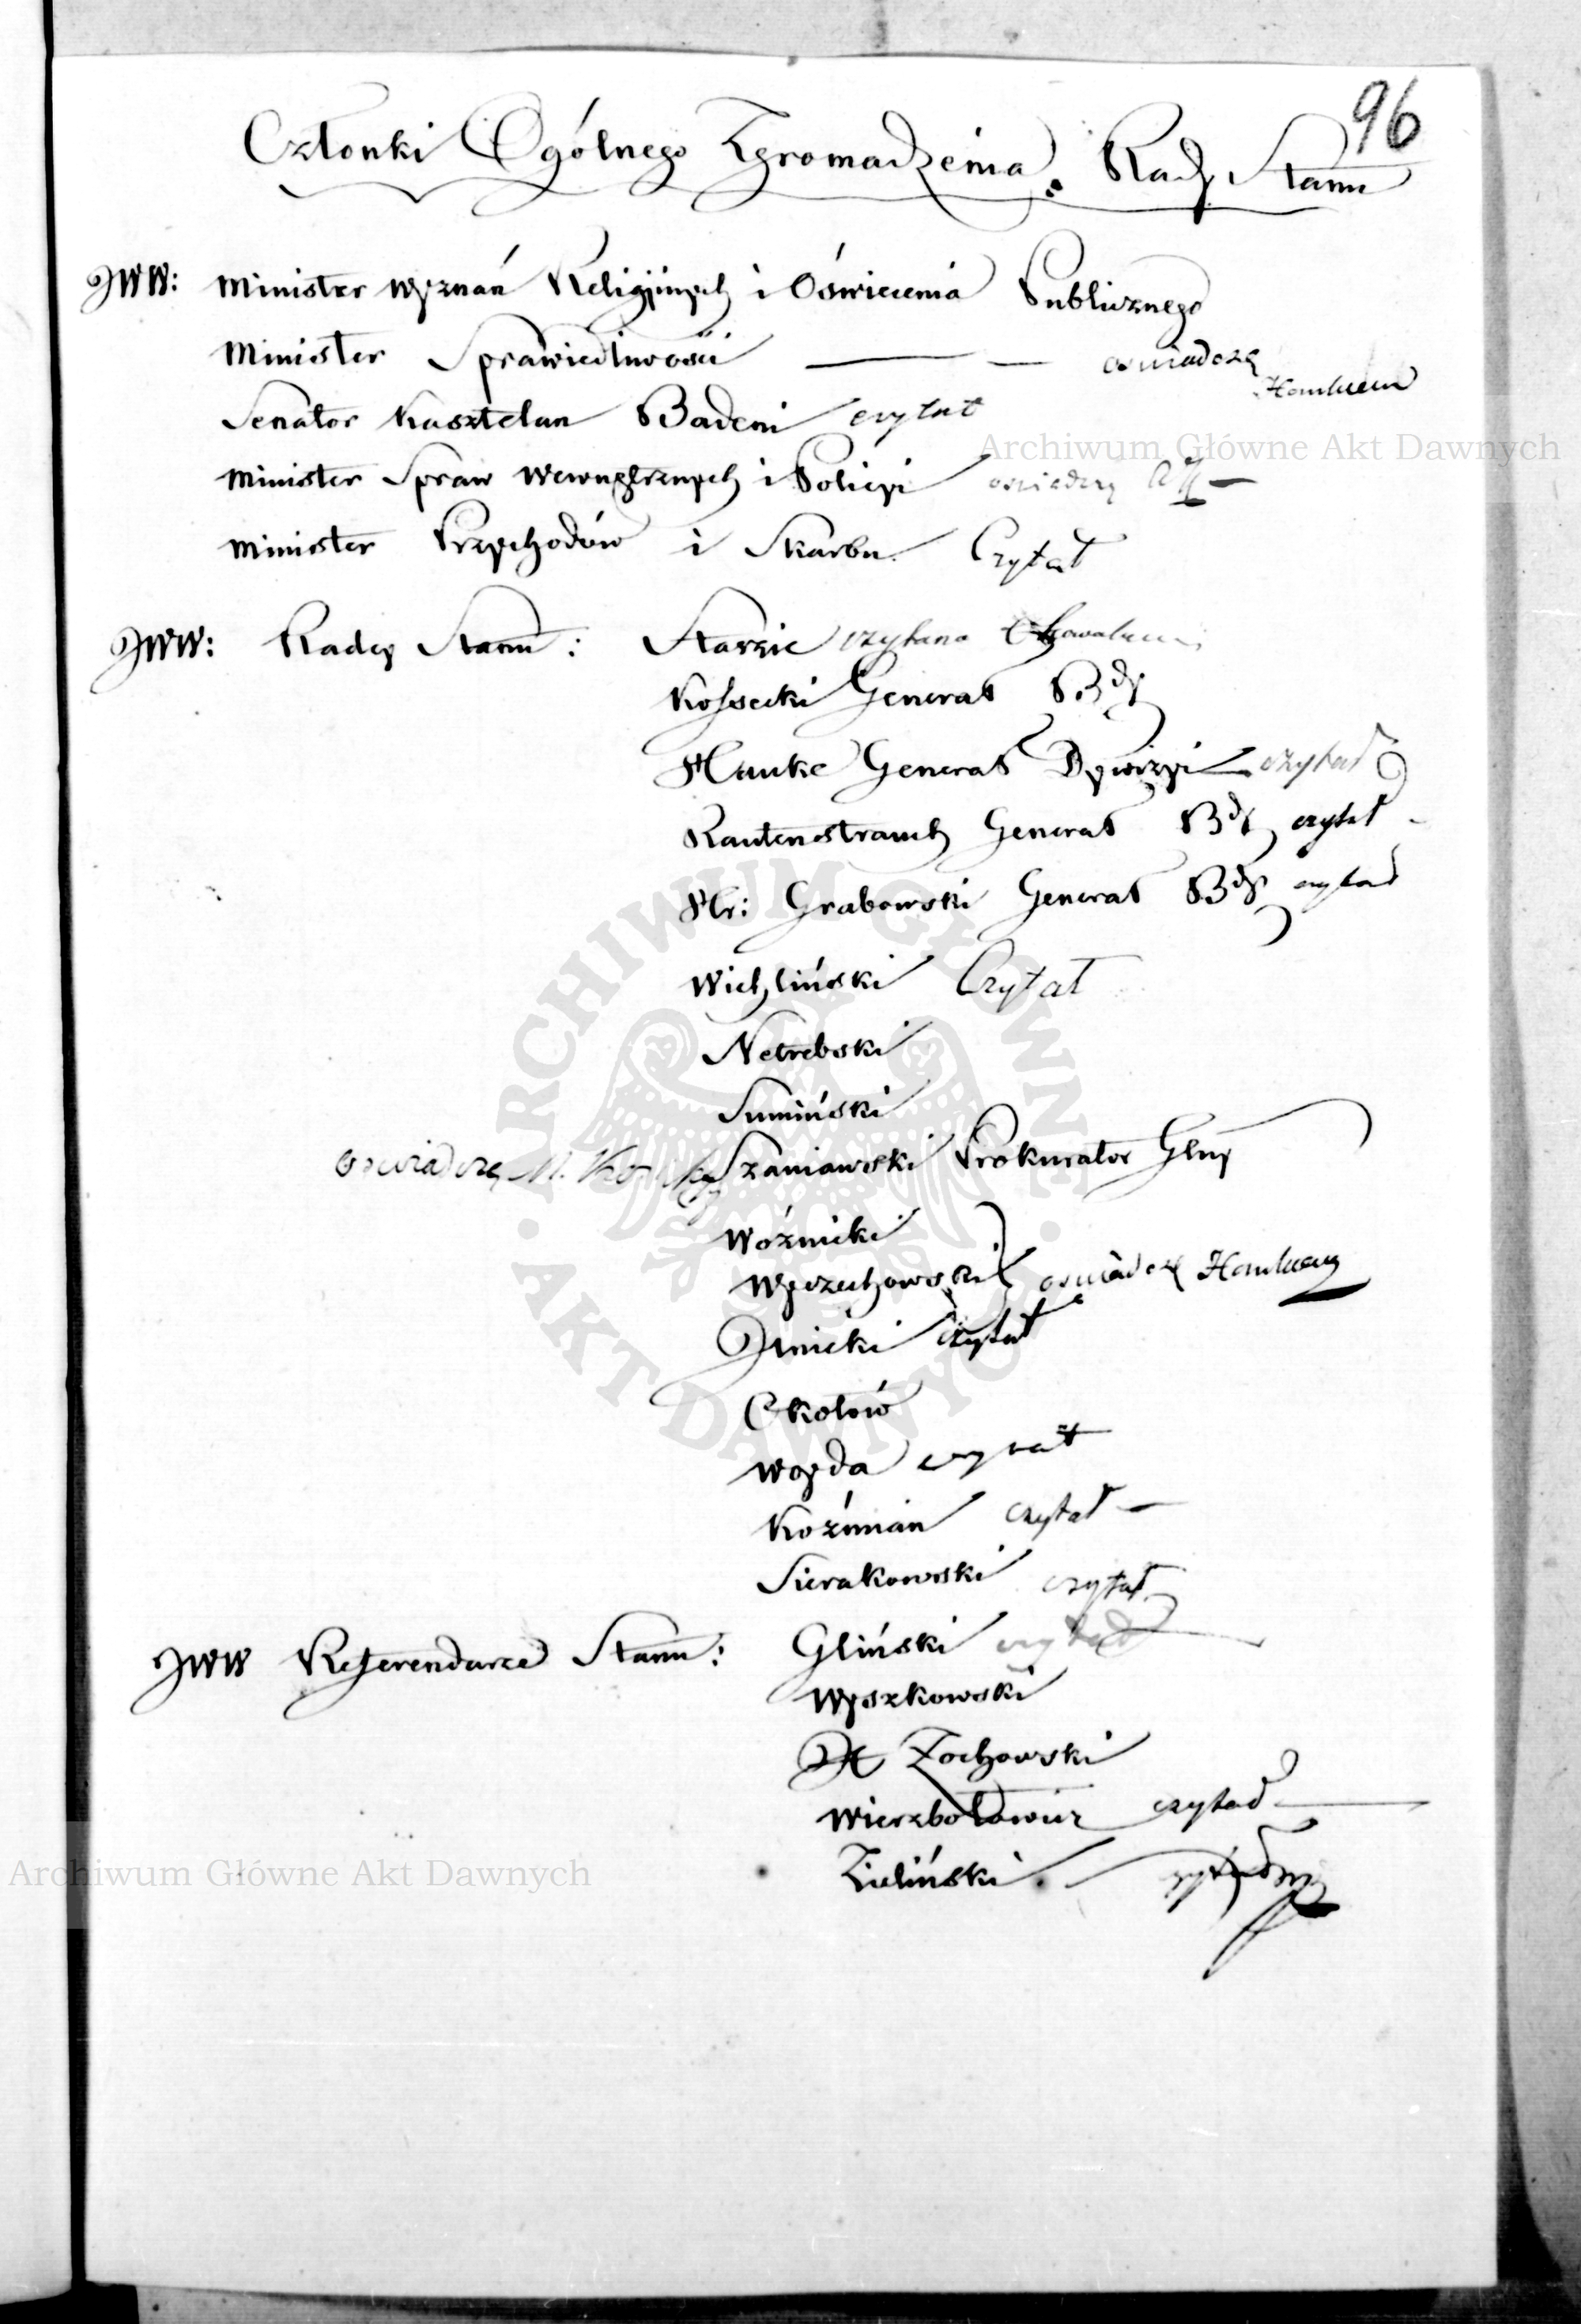 96
Członki Ogólnego Zgromadzenia Rady Stanu
JWW: Minister Wyznań Religijnych i Oświecenia Publicznego
Minister Sprawiedliwości — — oswiadczę
Senator Kasztelan Badeni czytał
Archiwum Główne Akt Dawnych
Minister Spraw Wewnętrznych i Policyi
Minister Przychodów i Skarbu Czytał
JWW: Radcy Stanu: Staszic czytano
Kossecki Generał Bdy
Hauke Generał Dywizyi czytał
Rautenstrauch Generał Bdy czytał
Hr: Grabowski Generał Bdy czytał
Wichliński Czytał
Netrebski
Sumiński
oswiadczę Szaniawski Prokurator Glny
Woźnicki
Wyczechowski oswiadczę
Linicki czytał
Okołów
Woyda czytał
Koźmian czytał —
Sierakowski czytał
JWW Referendarze Stanu: Gliński czytał
Wyszkowski
Żochowski
Wierzbołowicz czytał
Zieliński
Archiwum Główne Akt Dawnych
ARCHIWUM GŁÓWNE AKT DAWNYCH